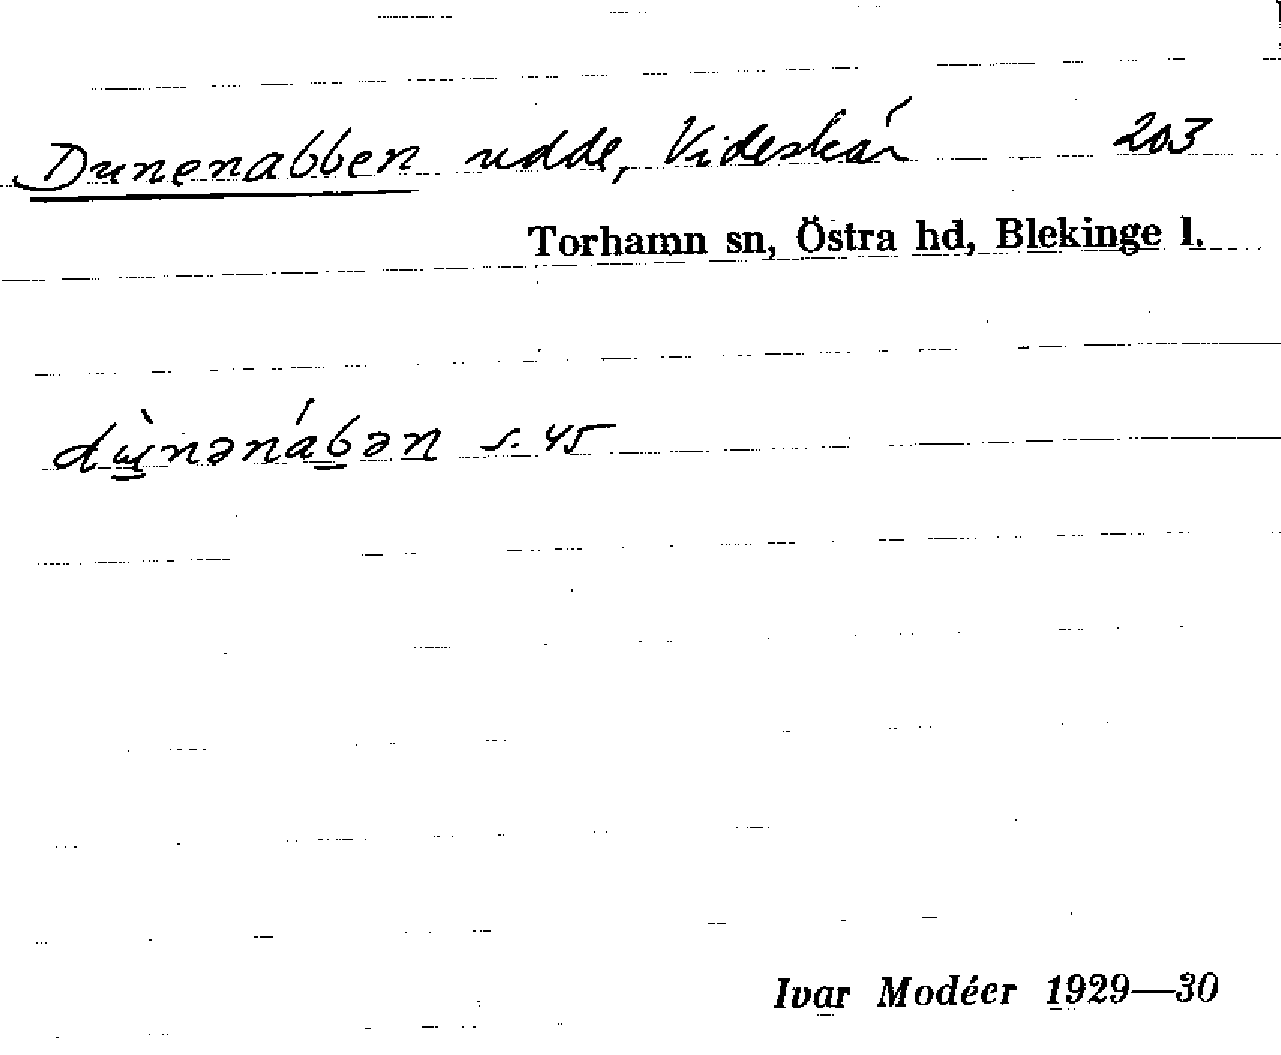 Dunenabben udde, Videskär 203
Torhamn sn, Östra hd, Blekinge l.
dùnənábən s. 45
Ivar Modéer 1929—30